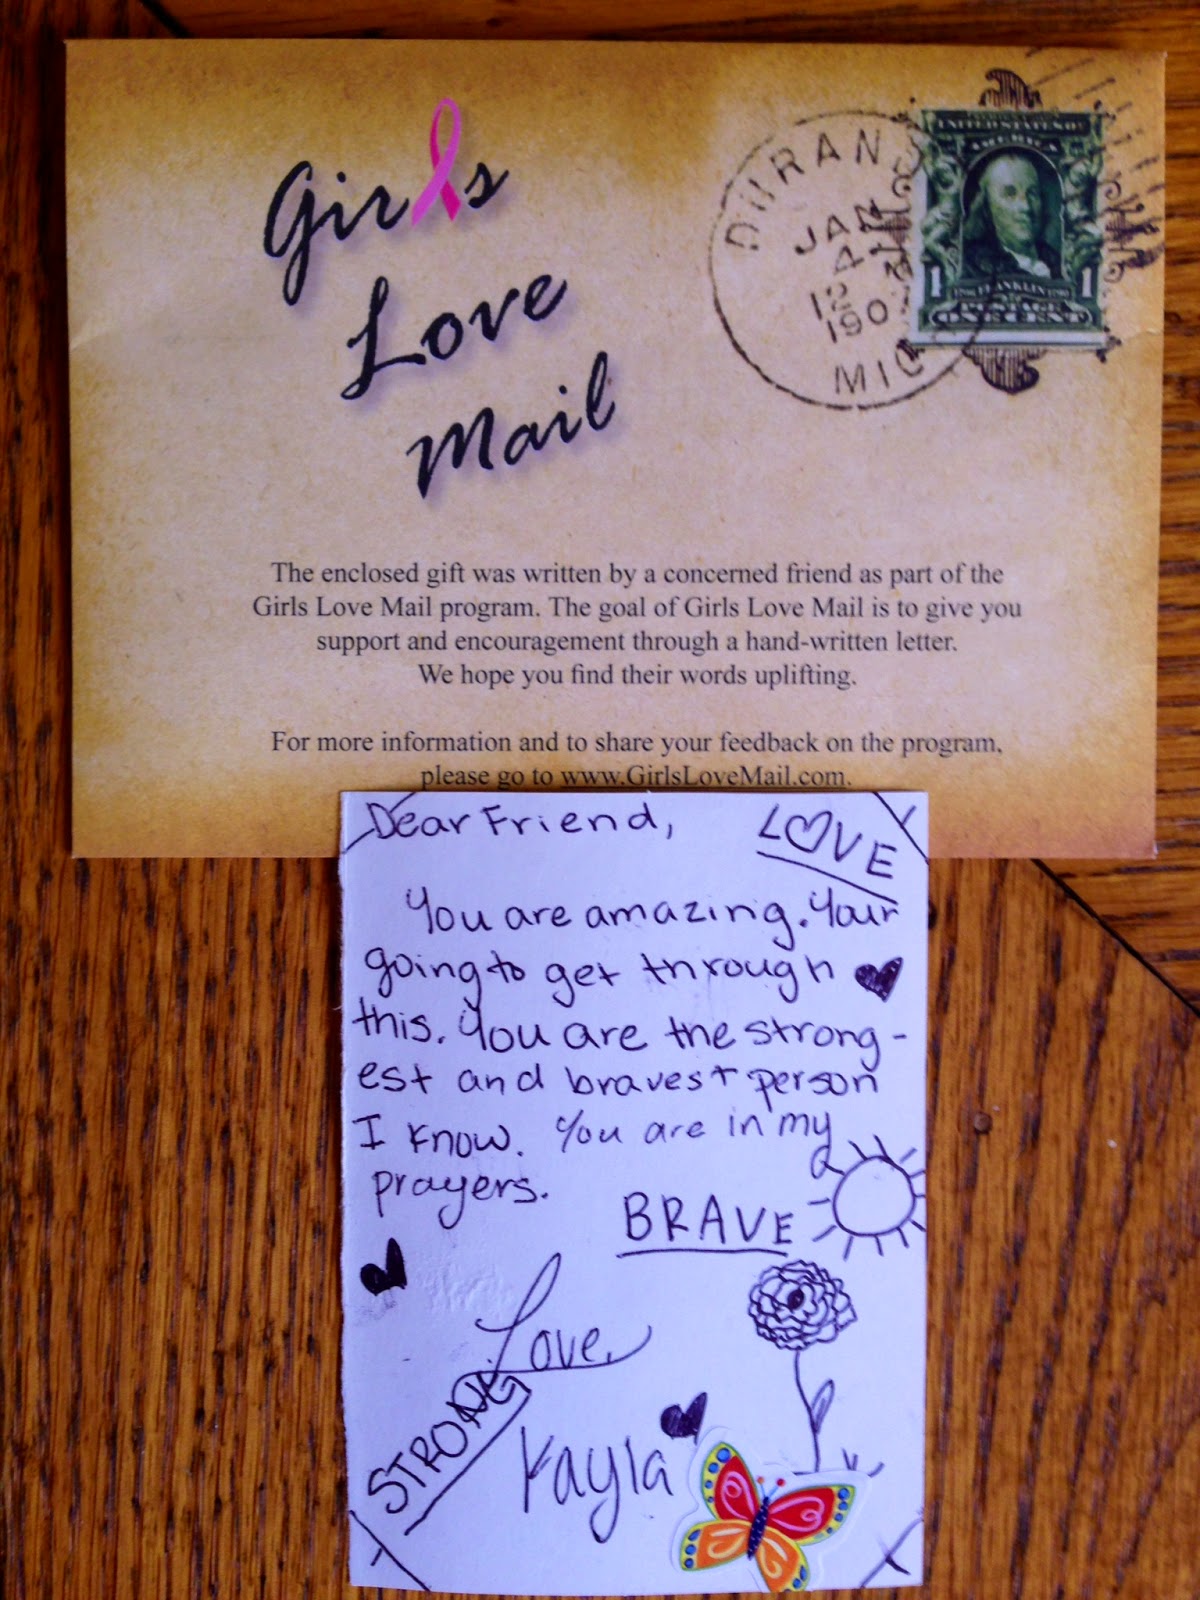 Girls
Love
Mail
DURAN
JAN
12
190
MIC
UNITED STATES OF
AMERICA
1 1
FRANKLIN
POSTAGE
ONE CENT
The enclosed gift was written by a concerned friend as part of the
Girls Love Mail program. The goal of Girls Love Mail is to give you
support and encouragement through a hand-written letter.
We hope you find their words uplifting.
For more information and to share your feedback on the program,
please go to www.GirlsLoveMail.com.
Dear Friend,
LOVE
You are amazing. Your
going to get through
this. You are the strong-
est and bravest person
I know. You are in my
prayers.
BRAVE
Love,
STRONG
Kayla